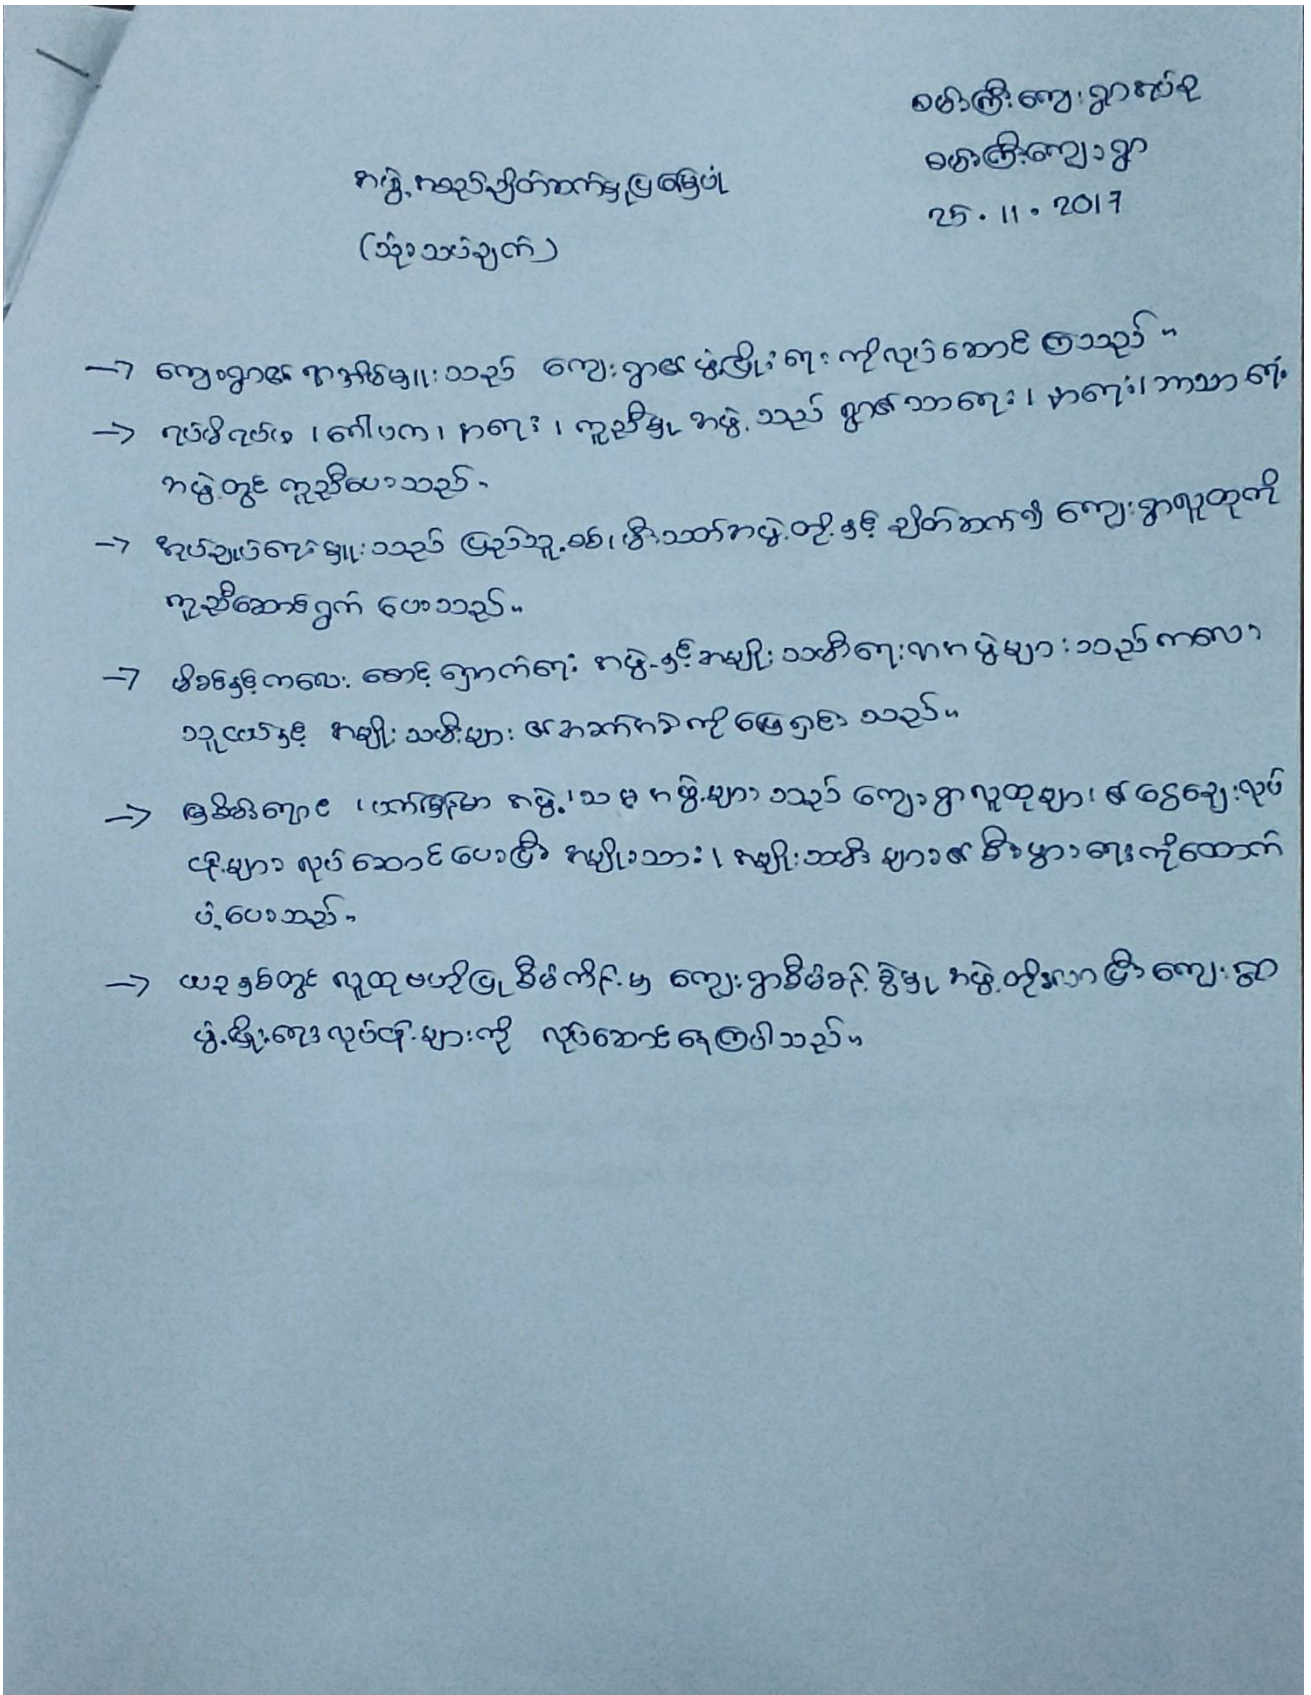 ကျေးရွာအုပ်စု
ကျေးရွာ
အဖွဲ့အစည်းချိတ်ဆက်မှုပြမြေပုံ
25.11.2017
(သုံးသပ်ချက်)
→ ကျေးရွာ၏ ရာအိမ်မှူးသည် ကျေးရွာ၏ ဖွံ့ဖြိုးရေး ကိုလုပ်ဆောင် ကြသည်။
→ ရပ်မိရပ်ဖ၊ ဂေါပက၊ နာရေး၊ ကူညီမှု အဖွဲ့ သည် ရွာ၏သာရေး၊ နာရေး၊ ဘာသာ ရေး
အဖွဲ့တွင် ကူညီပေးသည်။
→ အုပ်ချုပ်ရေးမှူးသည် ပြည်သူ့စစ်၊ မီးသတ်အဖွဲ့တို့နှင့် ချိတ်ဆက်၍ ကျေးရွာလူထုကို
ကူညီဆောင်ရွက် ပေးသည်။
→ မိခင်နှင့်ကလေး စောင့်ရှောက်ရေး အဖွဲ့နှင့် အမျိုးသမီးရေးရာအဖွဲ့များသည် ကလေး
သူငယ်နှင့် အမျိုးသမီးများ ၏ အခက်အခဲကို ဖြေရှင်း သည်။
→ မြစိမ်းရောင်၊ ပက်မြန်မာ အဖွဲ့၊ သမ အဖွဲ့များ သည် ကျေးရွာလူထုများ ၏ ငွေချေးလုပ်
ငန်းများ လုပ်ဆောင်ပေးပြီး အမျိုးသား၊ အမျိုးသမီး များ၏ စီးပွားရေးကိုထောက်
ပံ့ပေးသည်။
→ ယခုနှစ်တွင် လူထုဗဟိုပြု စီမံကိန်းမှ ကျေးရွာစီမံခန့်ခွဲမှု အဖွဲ့တို့လာပြီး ကျေးရွာ
ဖွံ့ဖြိုးရေးလုပ်ငန်းများကို လုပ်ဆောင်နေကြပါသည်။